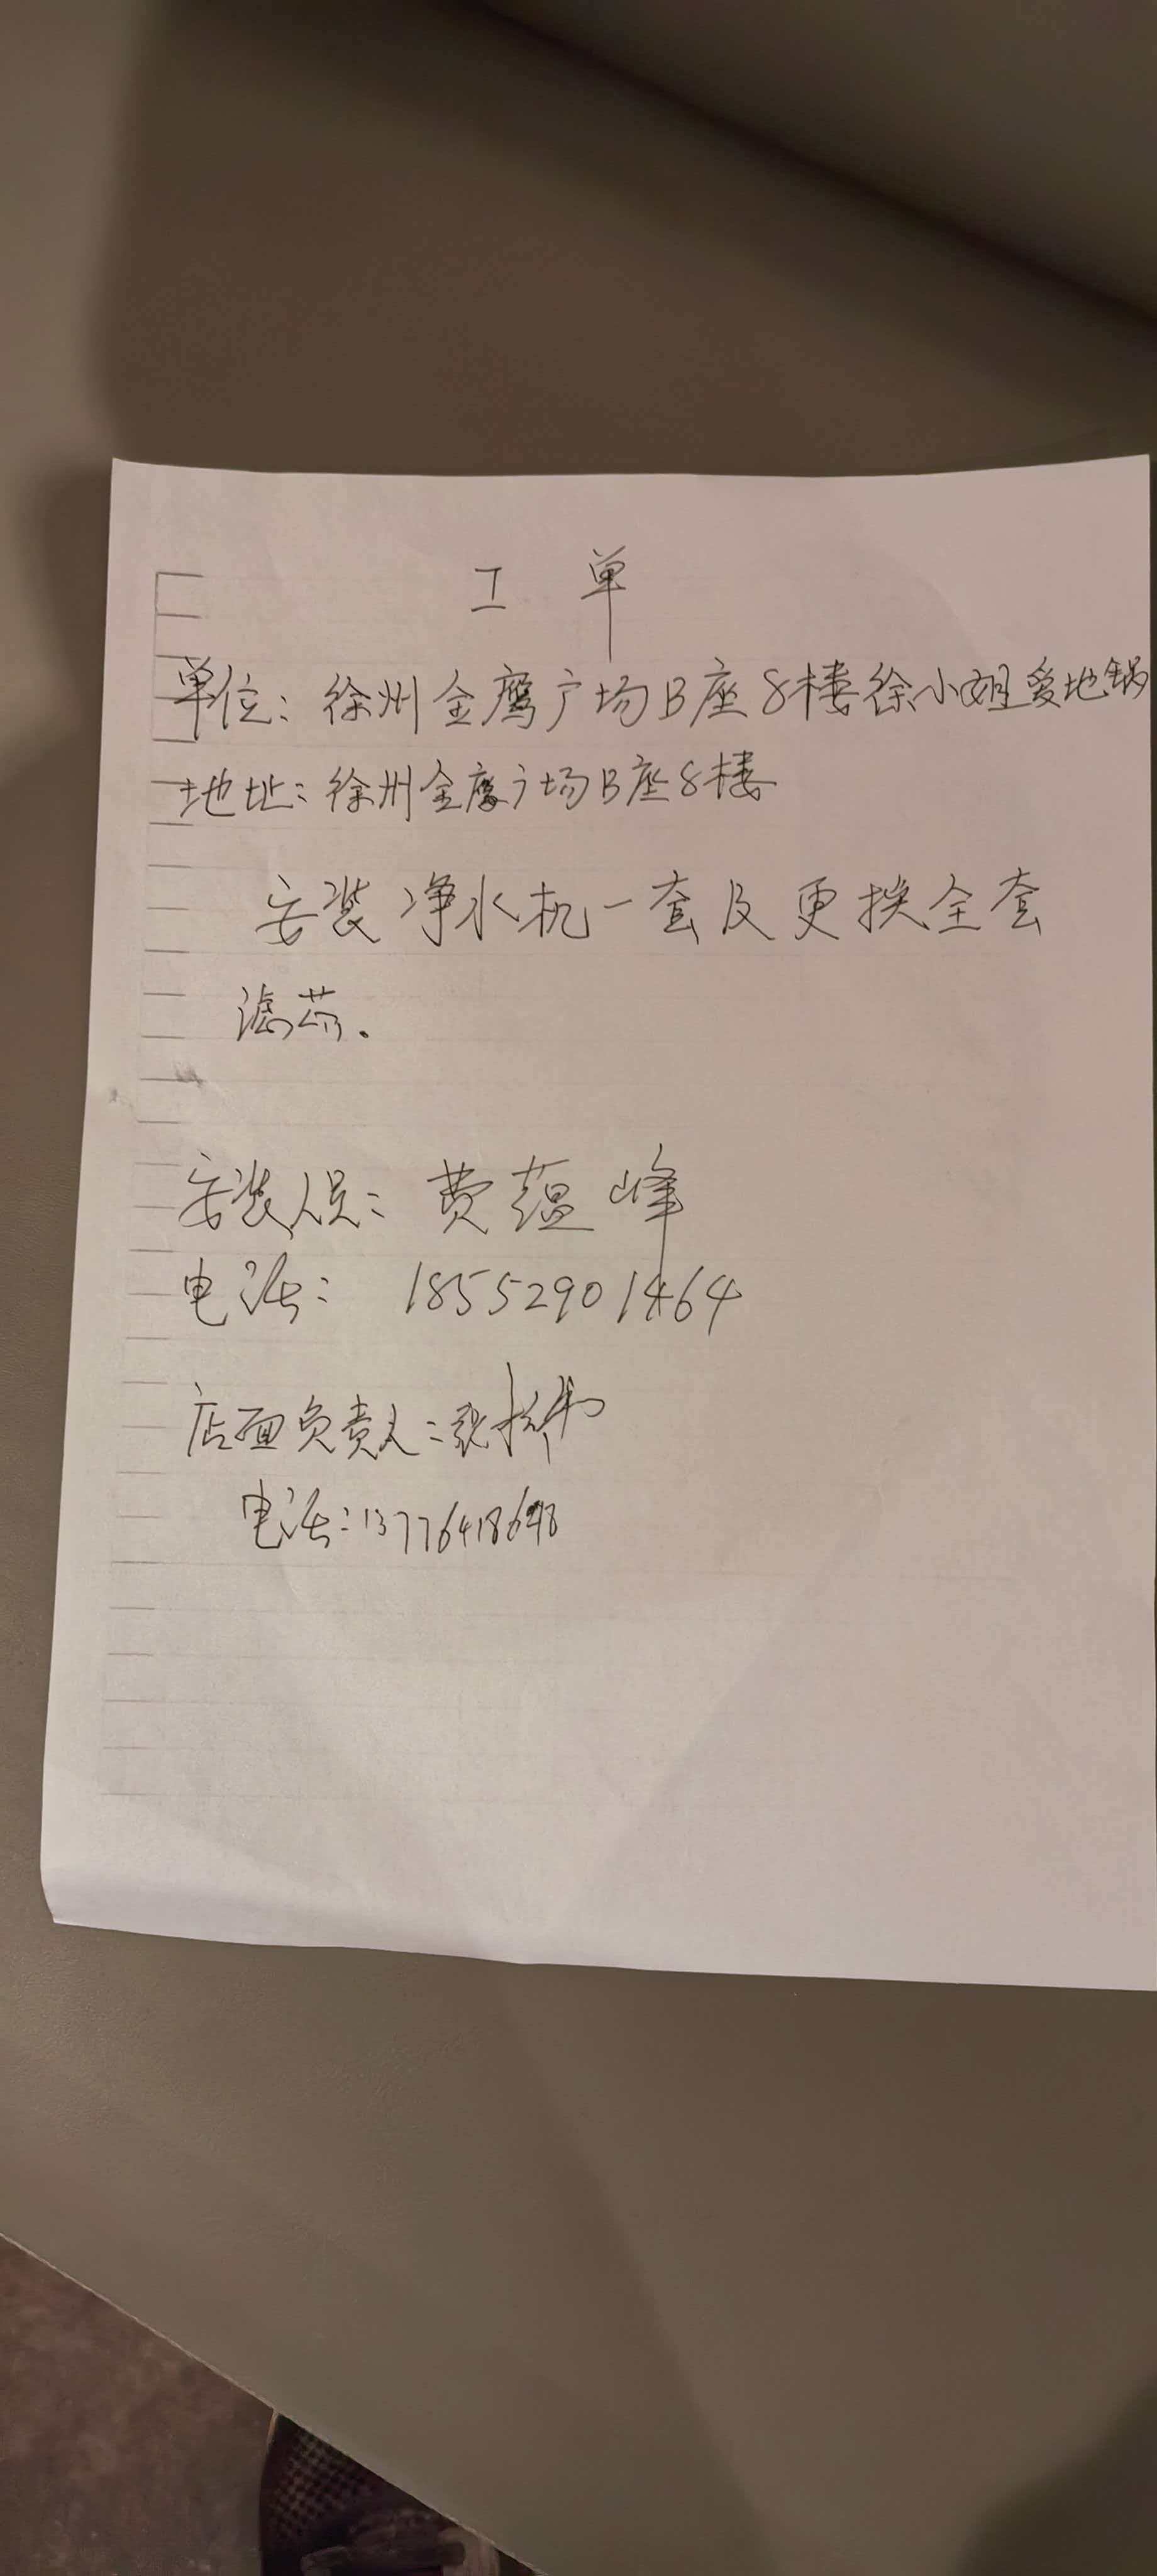 工单
单位：徐州金鹰广场B座8楼徐小姐爱地锅
地址：徐州金鹰广场B座8楼
安装净水机一套及更换全套
滤芯.
安装人员：费蕴峰
电话：18552901464
店面负责人：张
电话：137764186